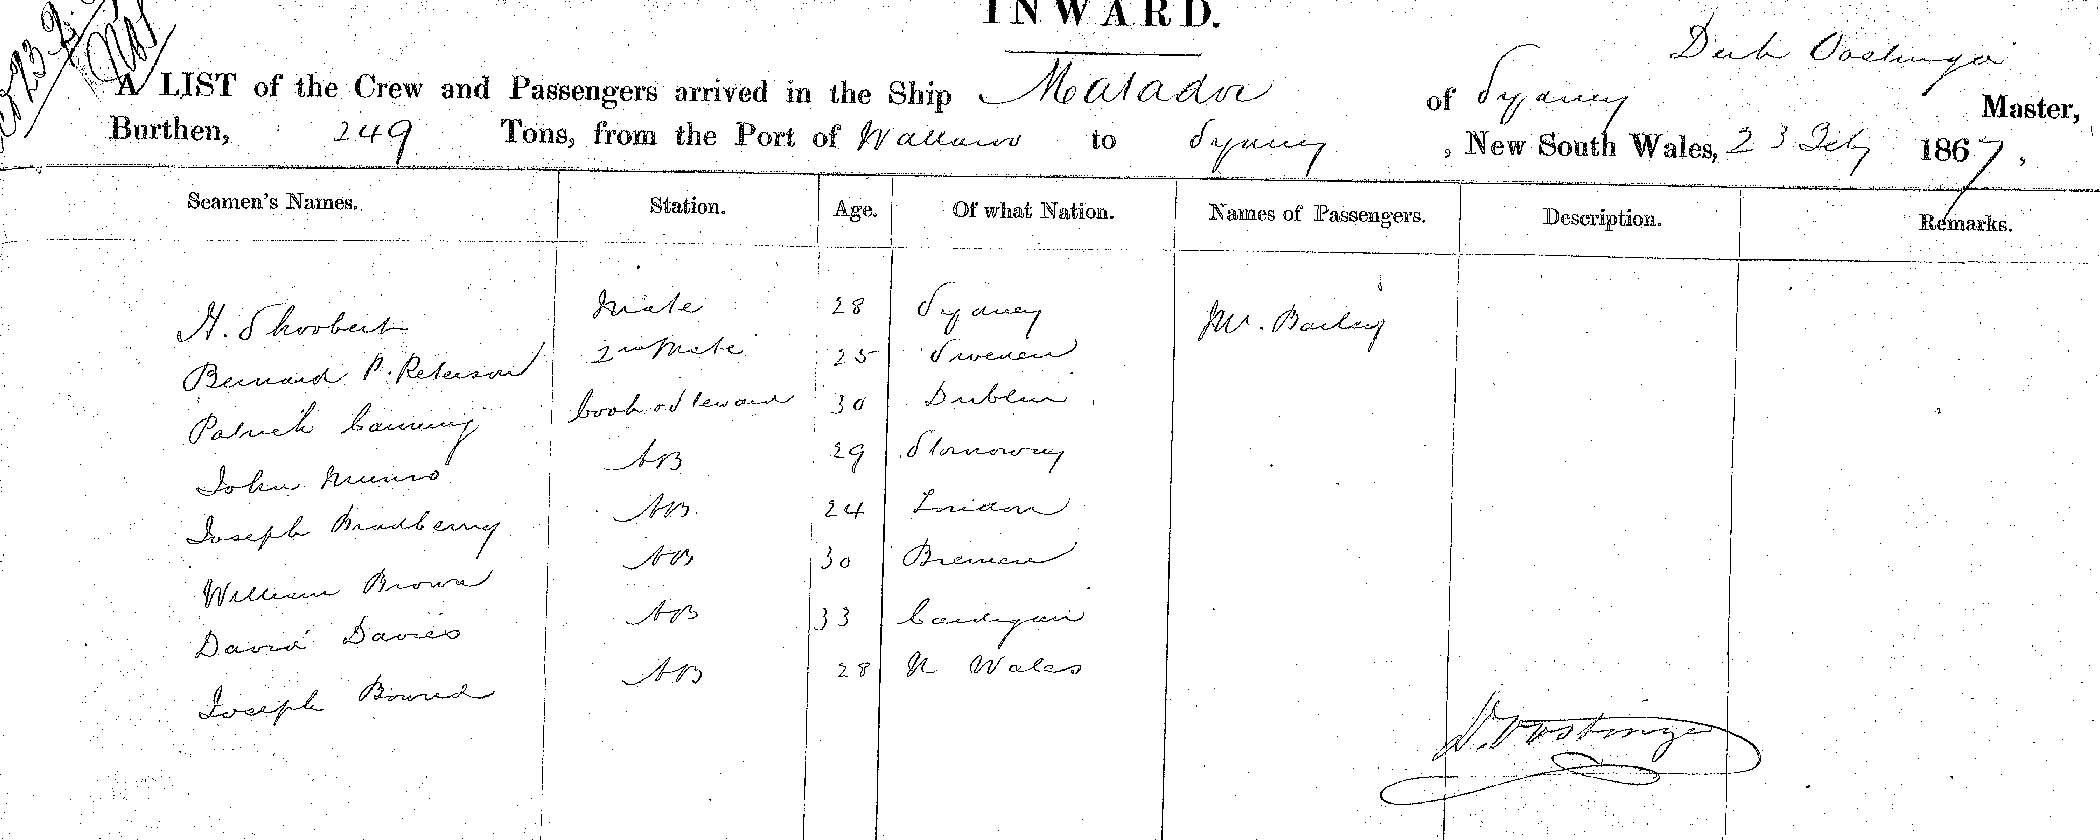 INWARD.
A LIST of the Crew and Passengers arrived in the Ship Matador of Sydney Master,
Burthen, 249 Tons, from the Port of Wallaroo to Sydney, New South Wales, 23 Feby 1867,
Seamen's Names. Station. Age. Of what Nation. Names of Passengers. Description. Remarks.
H. Shoobert Mate 28 Sydney Mr. Bailey
Bernard P. Peterson 2nd Mate 25 Sweden
Patrick Canning Cook & Steward 30 Dublin
John Munro AB 29 Stornoway
Joseph Bradberry AB 24 London
William Brown AB 30 Bremen
David Davies AB 33 Cardigan
Joseph AB 28 N Wales